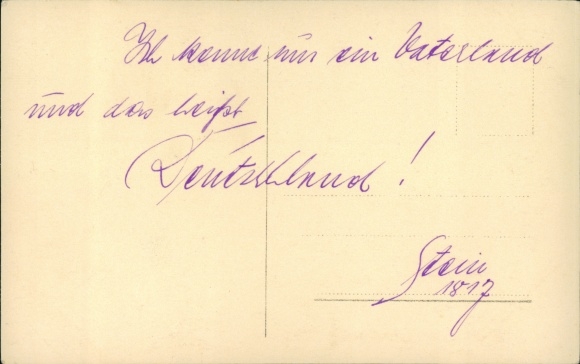 Ich kenne nur ein Vaterland
und das heißt
Deutschland!
Stein
1817